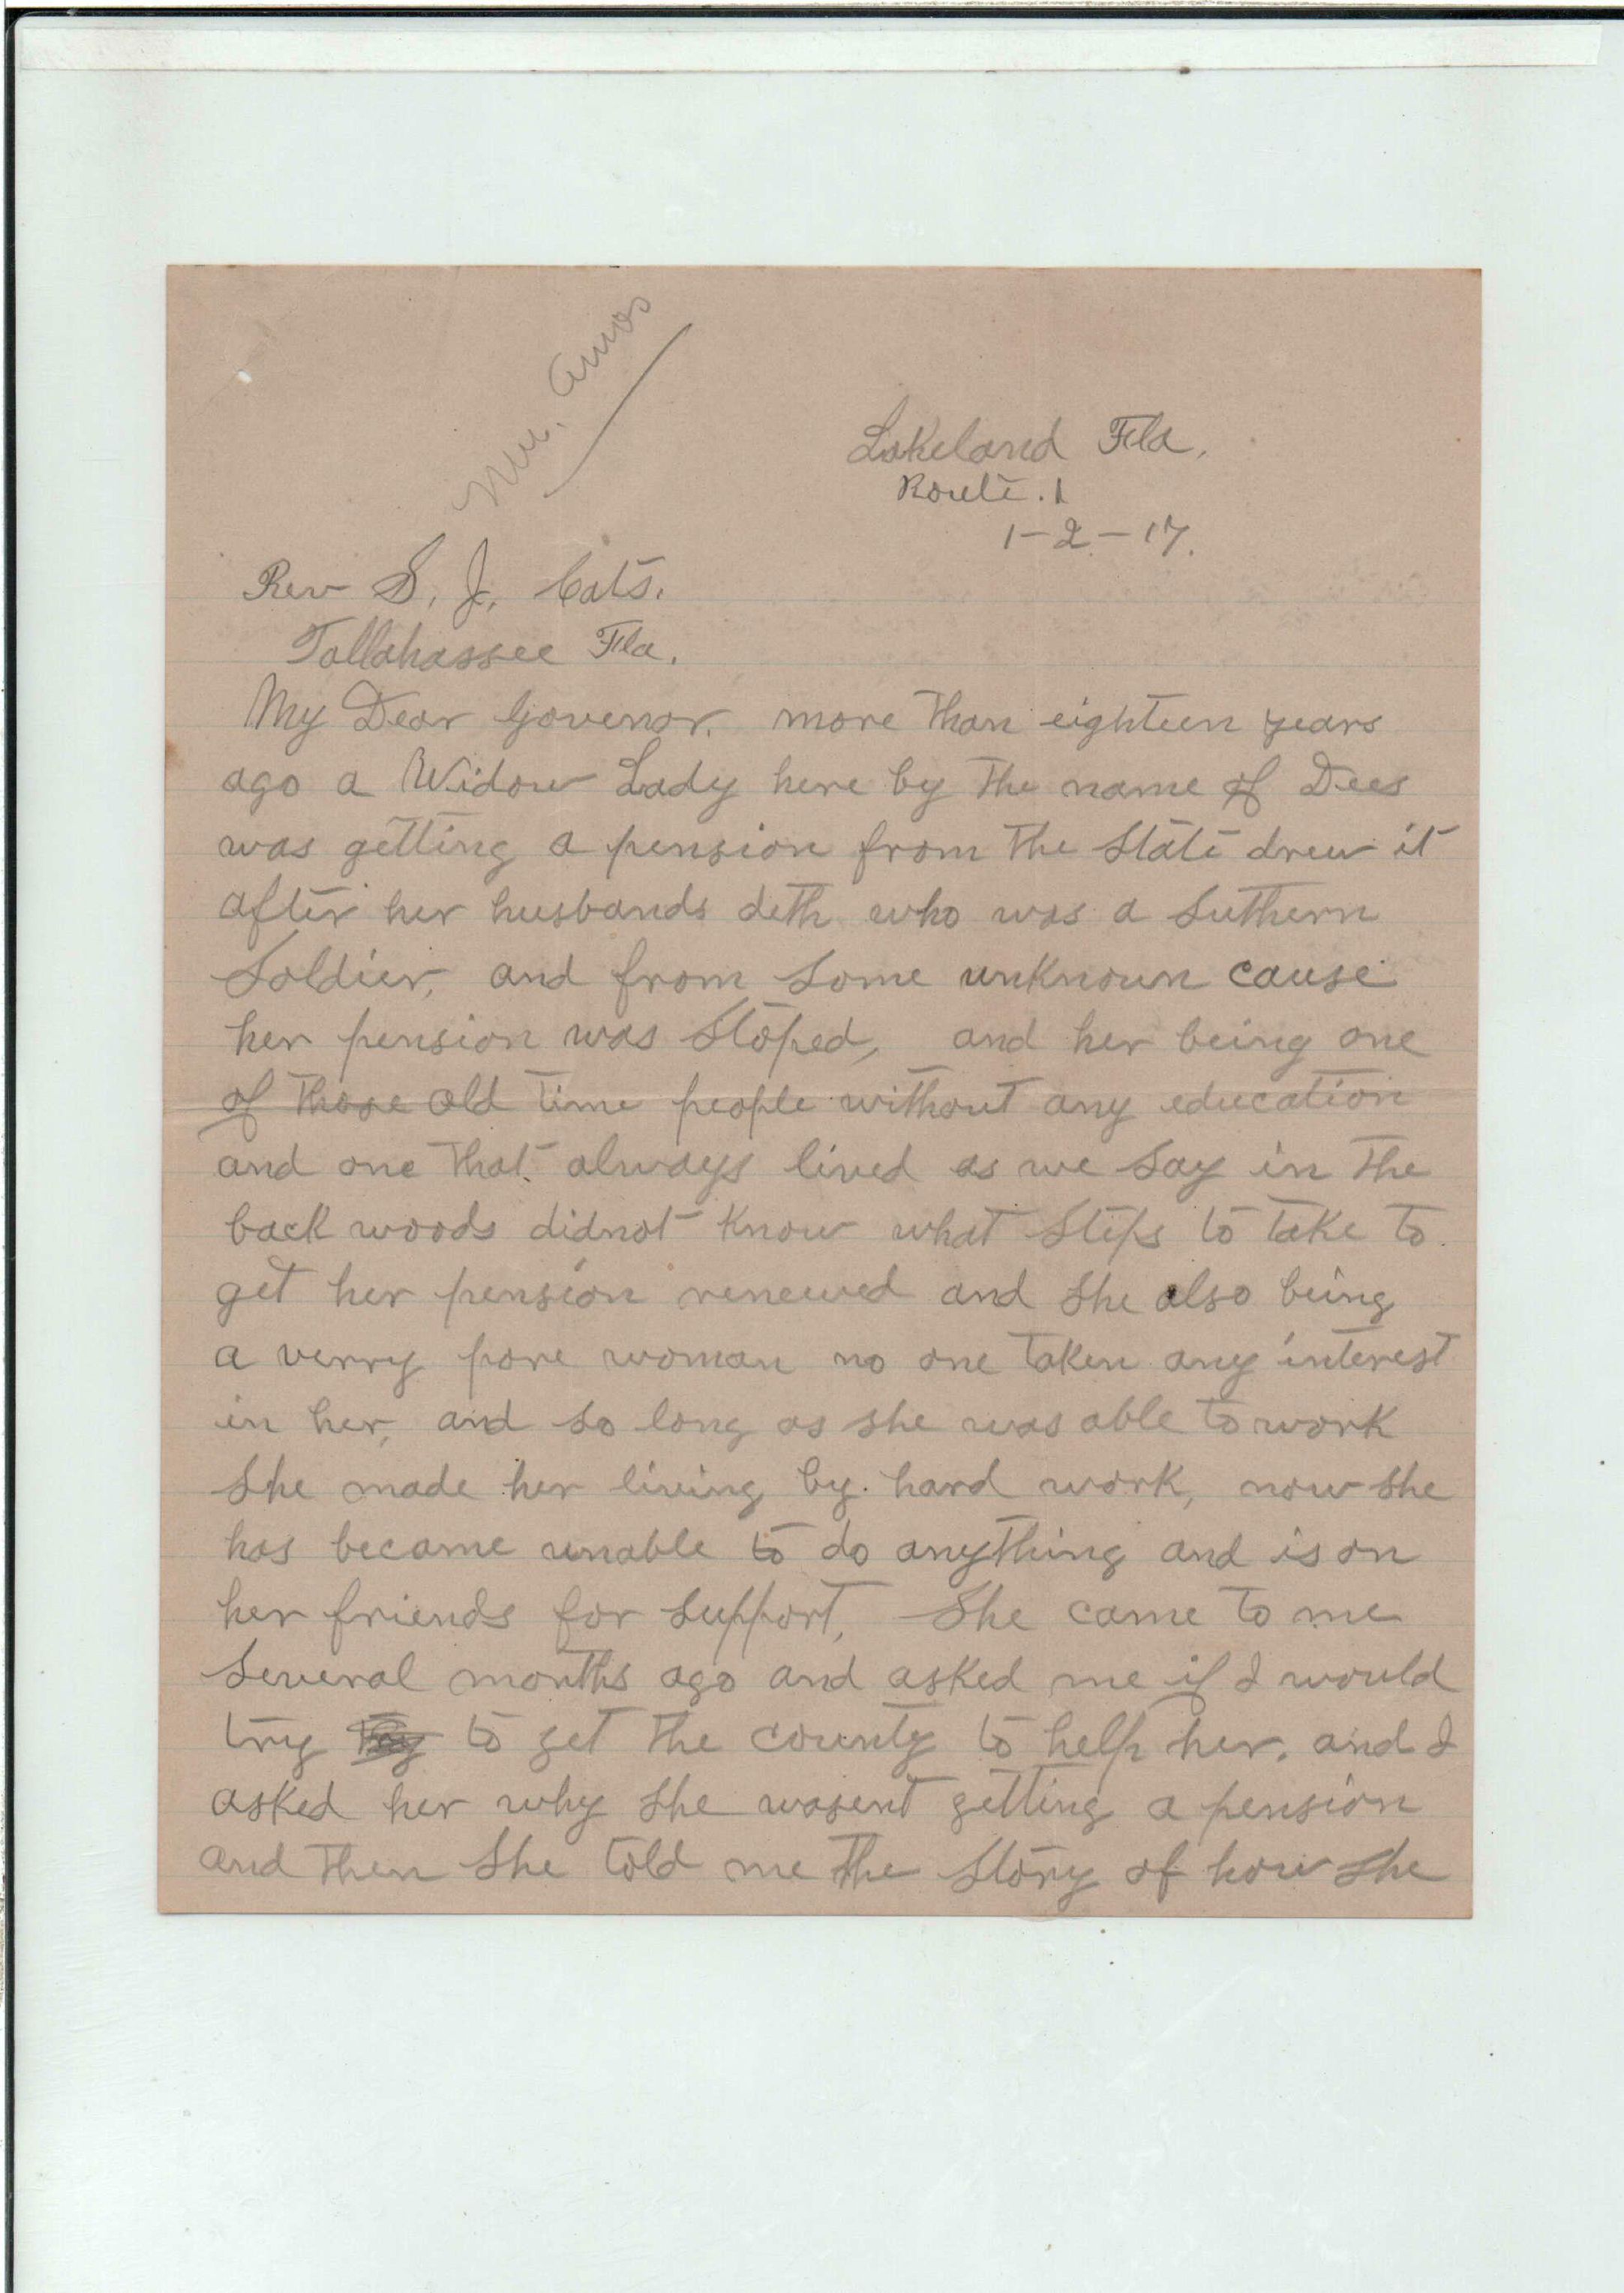 Mr. Amos
Lakeland Fla.
Route. 1
1-2-17.
Rev S. J. Cats.
Tallahassee Fla.
My Dear Govenor. more than eighteen years
ago a Widow Lady here by the name of Dees
was getting a pension from the State drew it
after her husbands deth who was a Suthern
Soldier, and from some unknown cause
her pension was Stoped, and her being one
of those old time people without any education
and one that always lived as we say in the
back woods didnot know what Steps to take to
get her pension renewed and She also being
a verry pore woman no one taken any interest
in her, and so long as she was able to work
She made her living by hard work, now she
has became unable to do anything and is on
her friends for support, She came to me
Several months ago and asked me if I would
try to get the county to help her. and I
asked her why she wasent getting a pension
and then She told me the Story of how she